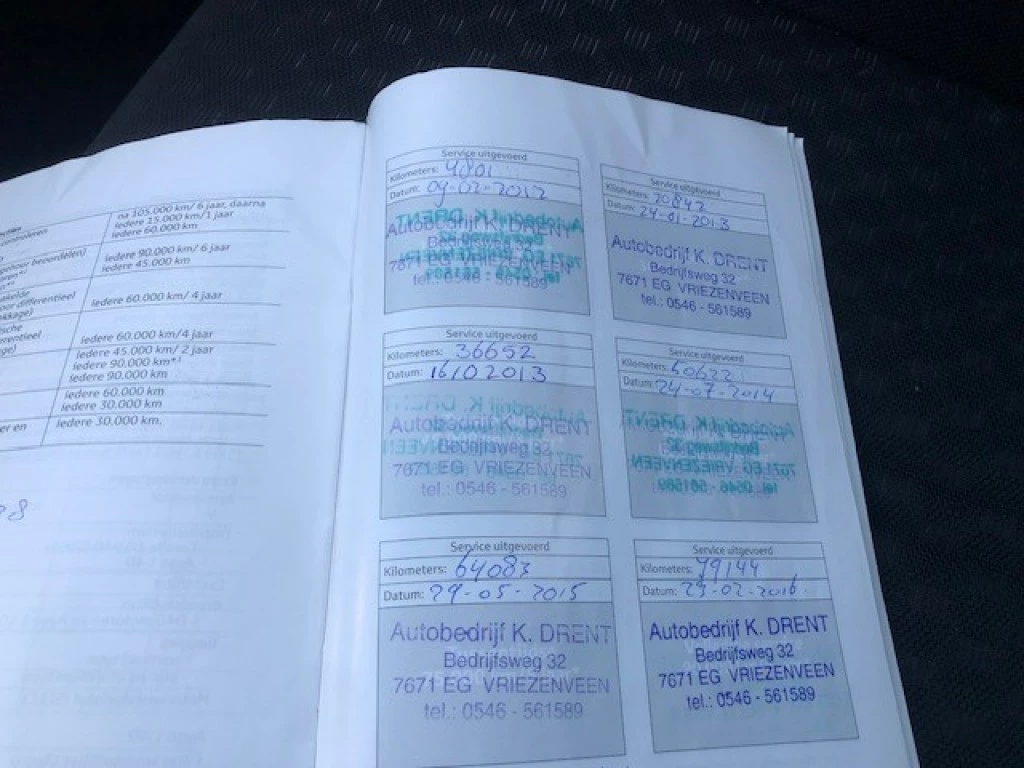 controleren
na 105.000 km/ 6 jaar, daarna
iedere 15.000 km/1 jaar
iedere 60.000 km
iedere 90.000 km/ 6 jaar
iedere 45.000 km
iedere 60.000 km/ 4 jaar
iedere 60.000 km/4 jaar
iedere 45.000 km/ 2 jaar
iedere 90.000 km
iedere 90.000 km
iedere 60.000 km
iedere 30.000 km
iedere 30.000 km.
Service uitgevoerd
Kilometers: 4801
Datum: 09-02-2012
Autobedrijf K. DRENT
Bedrijfsweg 32
7671 EG VRIEZENVEEN
tel.: 0546 - 561589
Service uitgevoerd
Kilometers: 20842
Datum: 24-01-2013
Autobedrijf K. DRENT
Bedrijfsweg 32
7671 EG VRIEZENVEEN
tel.: 0546 - 561589
Service uitgevoerd
Kilometers: 36652
Datum: 16102013
Autobedrijf K. DRENT
Bedrijfsweg 32
7671 EG VRIEZENVEEN
tel.: 0546 - 561589
Service uitgevoerd
Kilometers: 50622
Datum: 24-07-2014
Service uitgevoerd
Kilometers: 64083
Datum: 29-05-2015
Autobedrijf K. DRENT
Bedrijfsweg 32
7671 EG VRIEZENVEEN
tel.: 0546 - 561589
Service uitgevoerd
Kilometers: 79144
Datum: 23-02-2016
Autobedrijf K. DRENT
Bedrijfsweg 32
7671 EG VRIEZENVEEN
tel.: 0546 - 561589